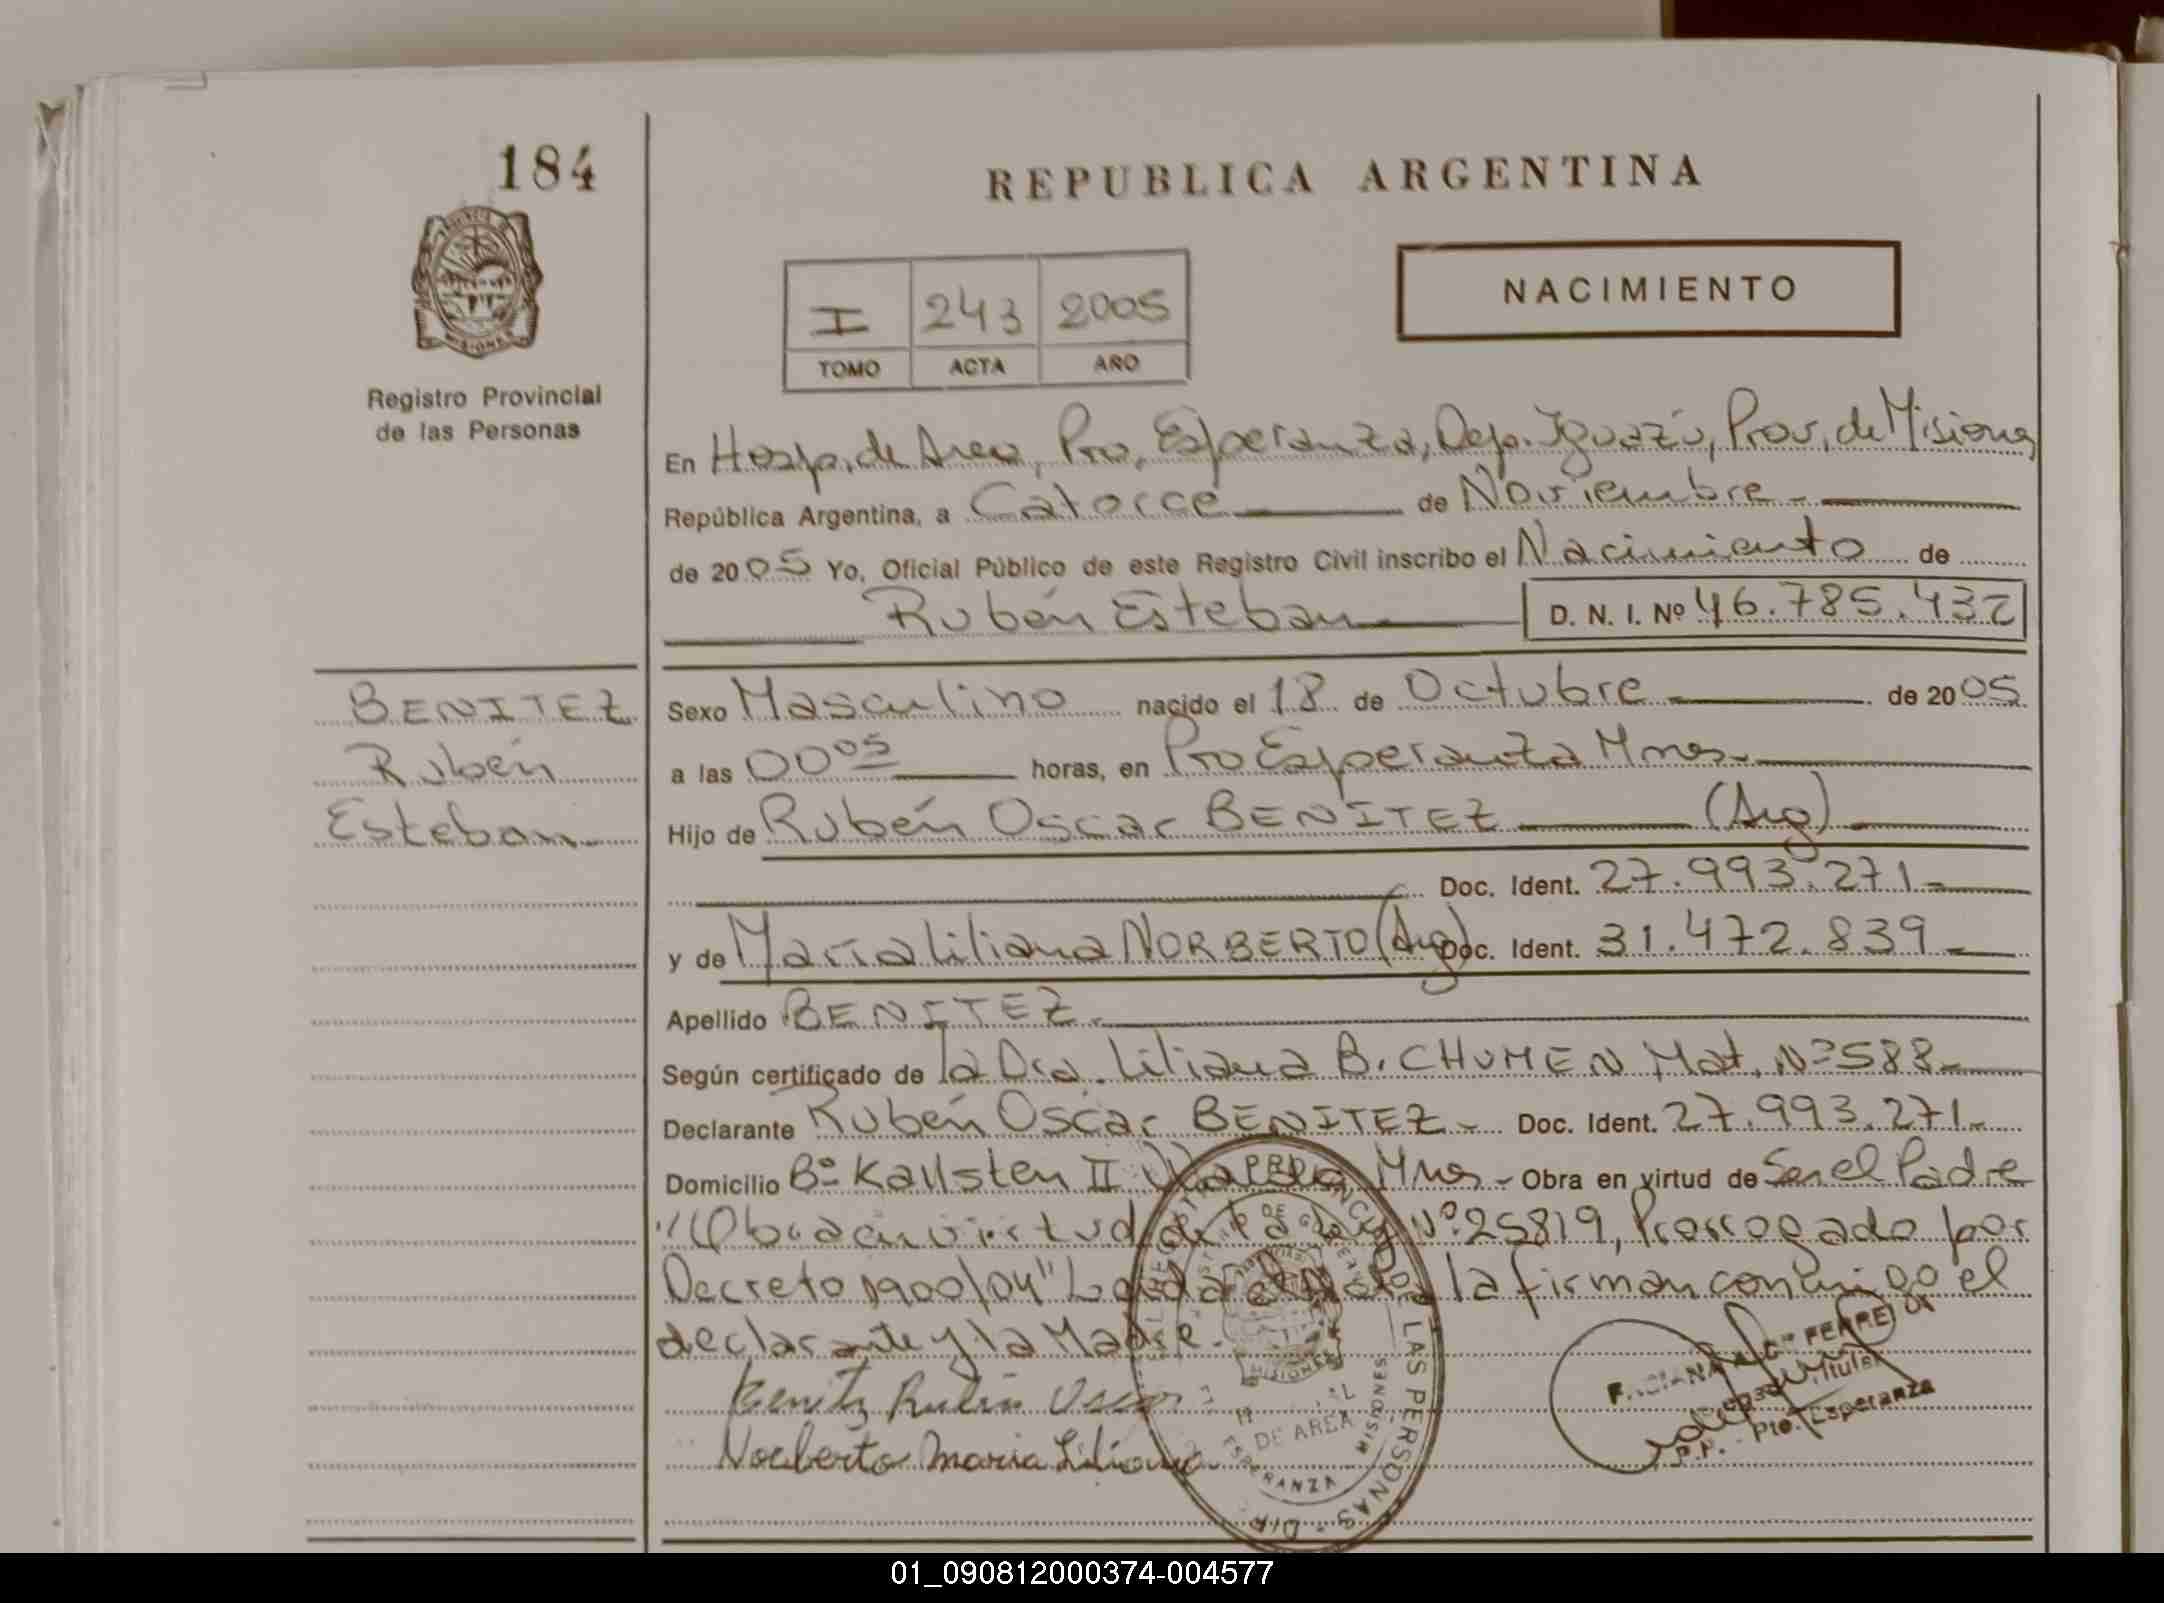 184
REPUBLICA ARGENTINA
NACIMIENTO
I 243 2005
TOMO ACTA AÑO
Registro Provincial
de las Personas
En Hosp. de Area, Pto. Esperanza, Dep. Iguazú, Prov. de Misiones
República Argentina, a Catorce de Noviembre
de 2005 Yo, Oficial Público de este Registro Civil inscribo el Nacimiento de
Rubén Esteban D. N. I. Nº 46.785.432
BENITEZ
Rubén
Esteban
Sexo Masculino nacido el 18 de Octubre de 2005
a las 00 05 horas, en Pto Esperanza Mnes.
Hijo de Rubén Oscar BENITEZ (Arg)
Doc. Ident. 27.993.271
y de María Liliana NORBERTO (Arg) Doc. Ident. 31.472.839
Apellido BENITEZ
Según certificado de la Dra. Liliana B. CHUMEN Mat. Nº 588
Declarante Rubén Oscar BENITEZ Doc. Ident. 27.993.271
Domicilio Bº Kallsten II Wanda Mnes Obra en virtud de Ser el Padre
"Obra en virtud de la Ley Nº 25819, Prorrogado por
Decreto 1900/04" Leída el Acta la firman conmigo el
declarante y la Madre.
Benitez Rubén Oscar
Norberto Maria Liliana
FERRE
Titular
R.P. - Pto. Esperanza
DE LAS PERSONAS - DIR
MISIONES
DE AREA
ESPERANZA - MISIONES
01_090812000374-004577